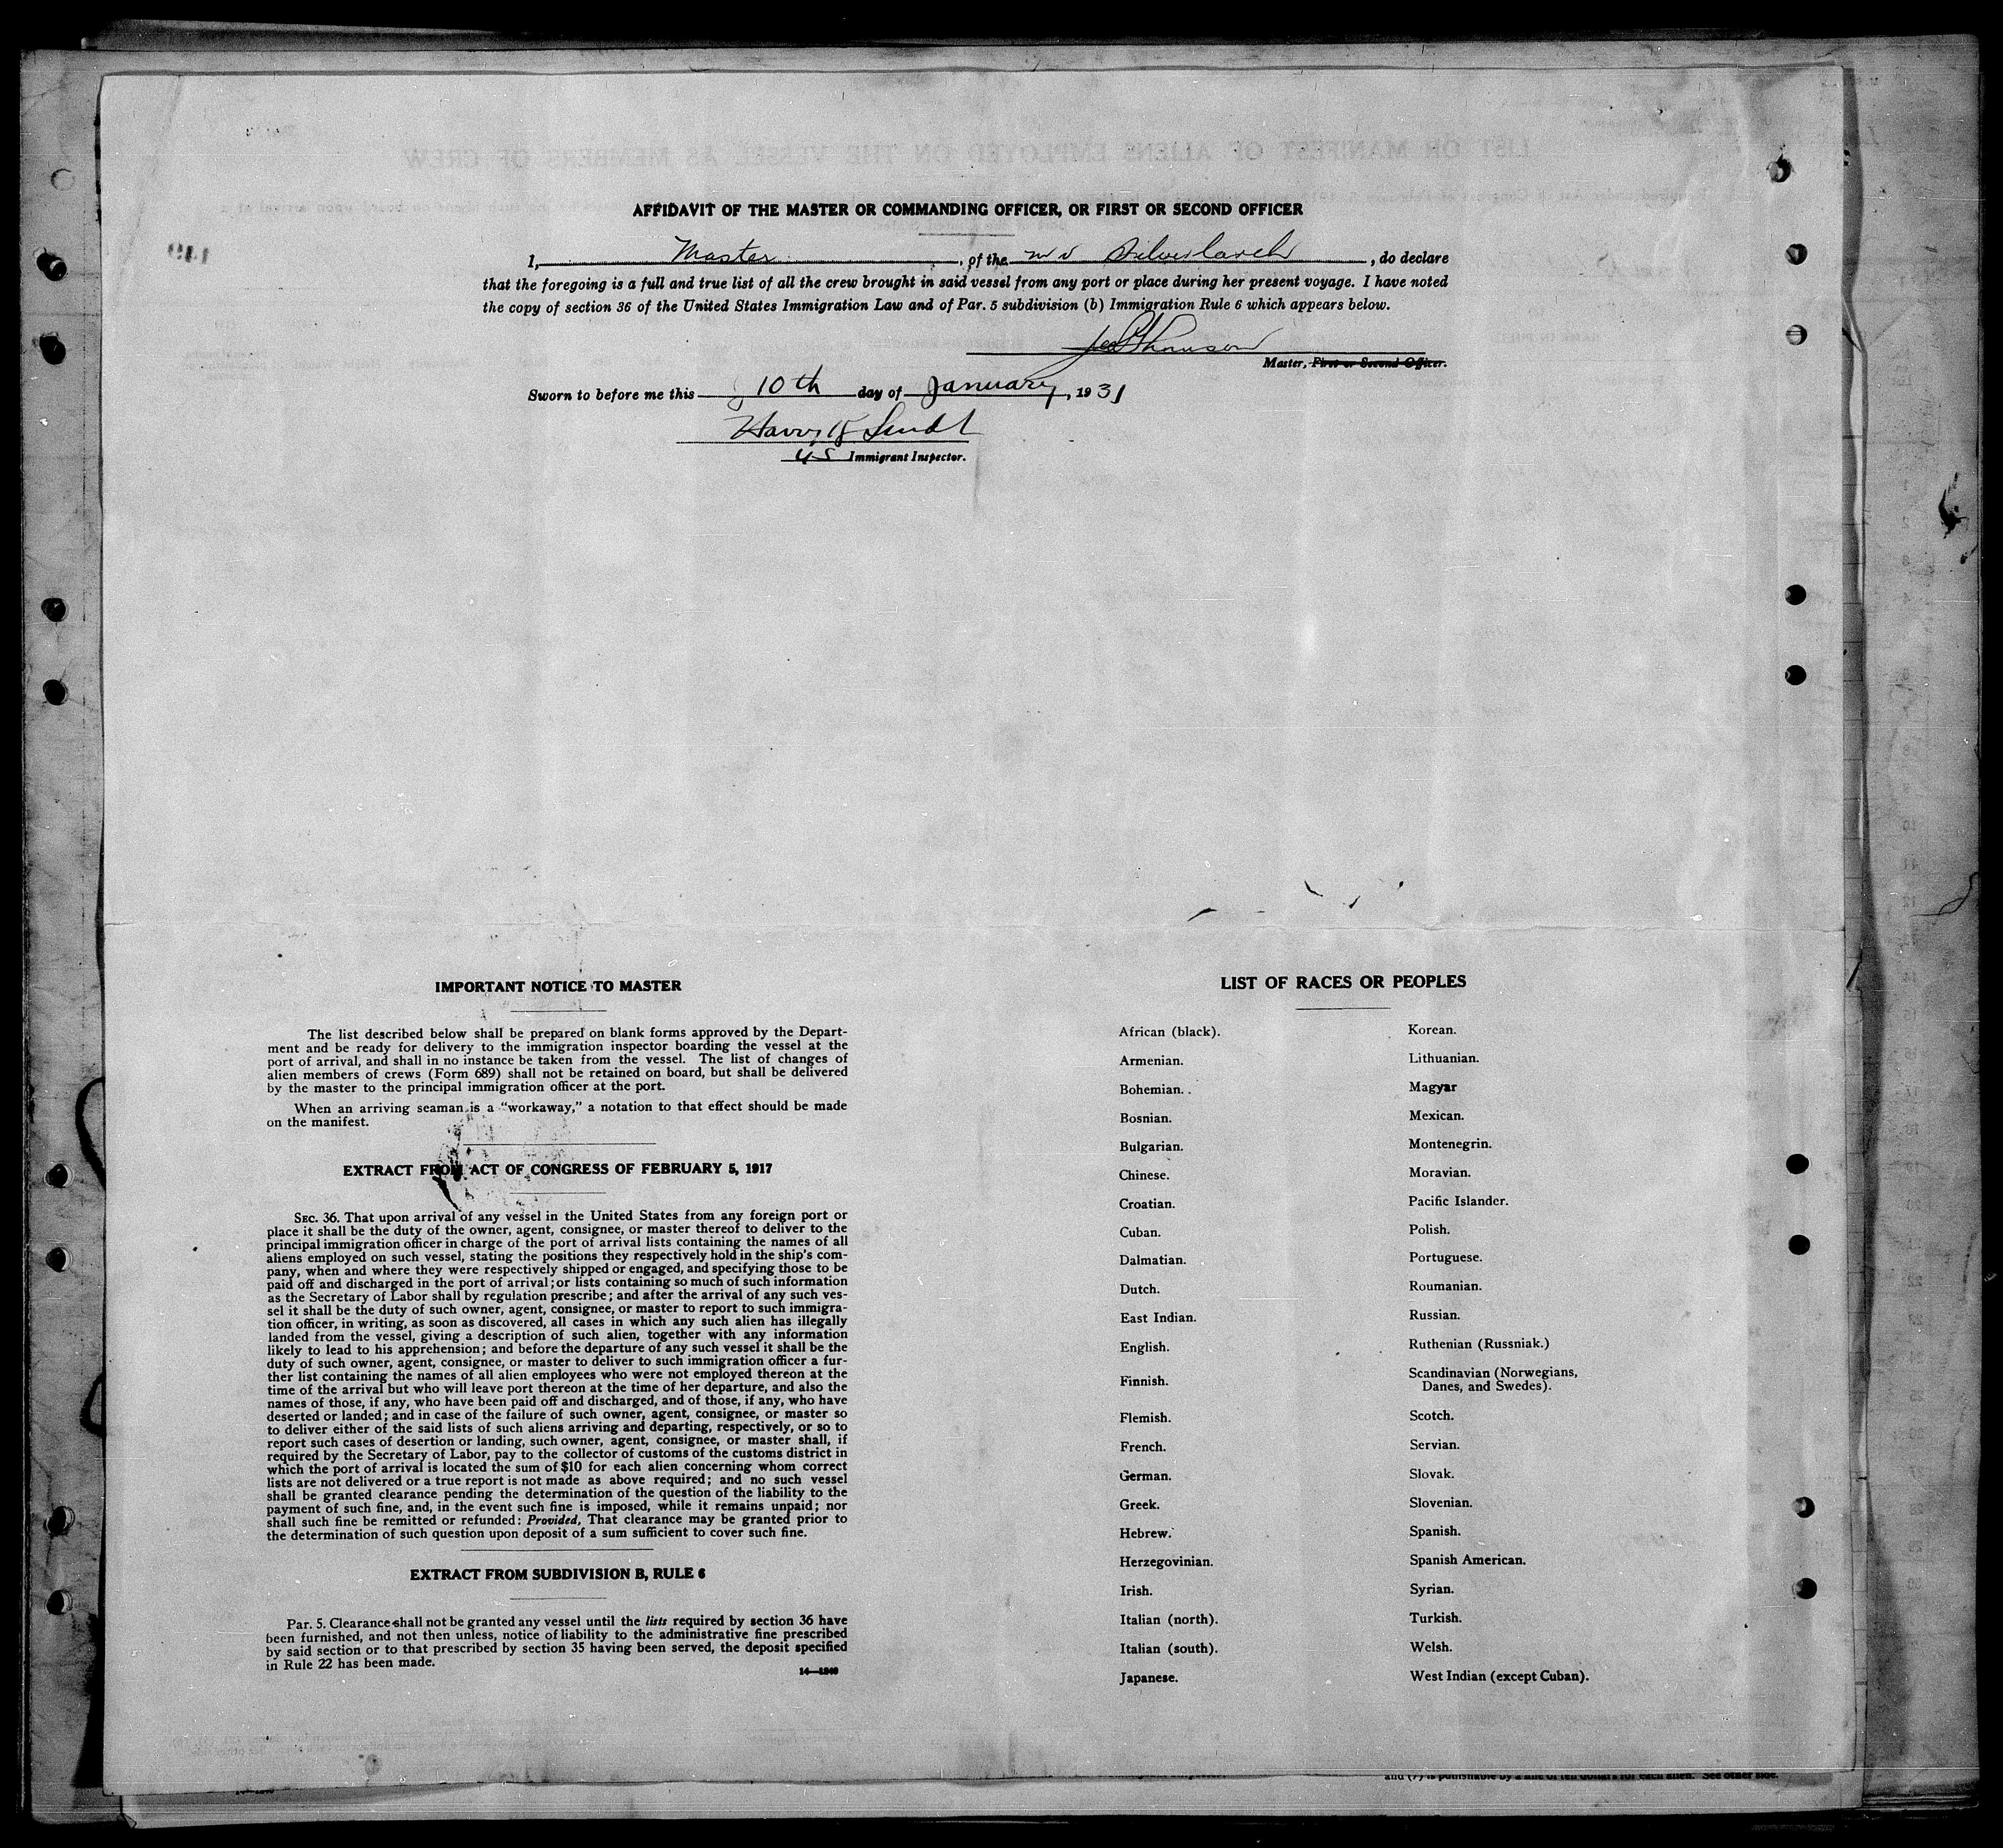 AFFIDAVIT OF THE MASTER OR COMMANDING OFFICER, OR FIRST OR SECOND OFFICER
I, Master, of the m v Silverlarch, do declare
that the foregoing is a full and true list of all the crew brought in said vessel from any port or place during her present voyage. I have noted
the copy of section 36 of the United States Immigration Law and of Par. 5 subdivision (b) Immigration Rule 6 which appears below.
Thomson
Master, First or Second Officer.
Sworn to before me this 10th day of January, 1931
Harry
US Immigrant Inspector.
IMPORTANT NOTICE TO MASTER
The list described below shall be prepared on blank forms approved by the Depart-
ment and be ready for delivery to the immigration inspector boarding the vessel at the
port of arrival, and shall in no instance be taken from the vessel. The list of changes of
alien members of crews (Form 689) shall not be retained on board, but shall be delivered
by the master to the principal immigration officer at the port.
When an arriving seaman is a "workaway," a notation to that effect should be made
on the manifest.
EXTRACT FROM ACT OF CONGRESS OF FEBRUARY 5, 1917
SEC. 36. That upon arrival of any vessel in the United States from any foreign port or
place it shall be the duty of the owner, agent, consignee, or master thereof to deliver to the
principal immigration officer in charge of the port of arrival lists containing the names of all
aliens employed on such vessel, stating the positions they respectively hold in the ship's com-
pany, when and where they were respectively shipped or engaged, and specifying those to be
paid off and discharged in the port of arrival; or lists containing so much of such information
as the Secretary of Labor shall by regulation prescribe; and after the arrival of any such ves-
sel it shall be the duty of such owner, agent, consignee, or master to report to such immigra-
tion officer, in writing, as soon as discovered, all cases in which any such alien has illegally
landed from the vessel, giving a description of such alien, together with any information
likely to lead to his apprehension; and before the departure of any such vessel it shall be the
duty of such owner, agent, consignee, or master to deliver to such immigration officer a fur-
ther list containing the names of all alien employees who were not employed thereon at the
time of the arrival but who will leave port thereon at the time of her departure, and also the
names of those, if any, who have been paid off and discharged, and of those, if any, who have
deserted or landed; and in case of the failure of such owner, agent, consignee, or master so
to deliver either of the said lists of such aliens arriving and departing, respectively, or so to
report such cases of desertion or landing, such owner, agent, consignee, or master shall, if
required by the Secretary of Labor, pay to the collector of customs of the customs district in
which the port of arrival is located the sum of $10 for each alien concerning whom correct
lists are not delivered or a true report is not made as above required; and no such vessel
shall be granted clearance pending the determination of the question of the liability to the
payment of such fine, and, in the event such fine is imposed, while it remains unpaid; nor
shall such fine be remitted or refunded: Provided, That clearance may be granted prior to
the determination of such question upon deposit of a sum sufficient to cover such fine.
EXTRACT FROM SUBDIVISION B, RULE 6
Par. 5. Clearance shall not be granted any vessel until the lists required by section 36 have
been furnished, and not then unless, notice of liability to the administrative fine prescribed
by said section or to that prescribed by section 35 having been served, the deposit specified
in Rule 22 has been made.
14—1240
LIST OF RACES OR PEOPLES
African (black).
Armenian.
Bohemian.
Bosnian.
Bulgarian.
Chinese.
Croatian.
Cuban.
Dalmatian.
Dutch.
East Indian.
English.
Finnish.
Flemish.
French.
German.
Greek.
Hebrew.
Herzegovinian.
Irish.
Italian (north).
Italian (south).
Japanese.
Korean.
Lithuanian.
Magyar
Mexican.
Montenegrin.
Moravian.
Pacific Islander.
Polish.
Portuguese.
Roumanian.
Russian.
Ruthenian (Russniak.)
Scandinavian (Norwegians,
Danes, and Swedes).
Scotch.
Servian.
Slovak.
Slovenian.
Spanish.
Spanish American.
Syrian.
Turkish.
Welsh.
West Indian (except Cuban).
and (7) is punishable by a fine of ten dollars for each alien. See other side.